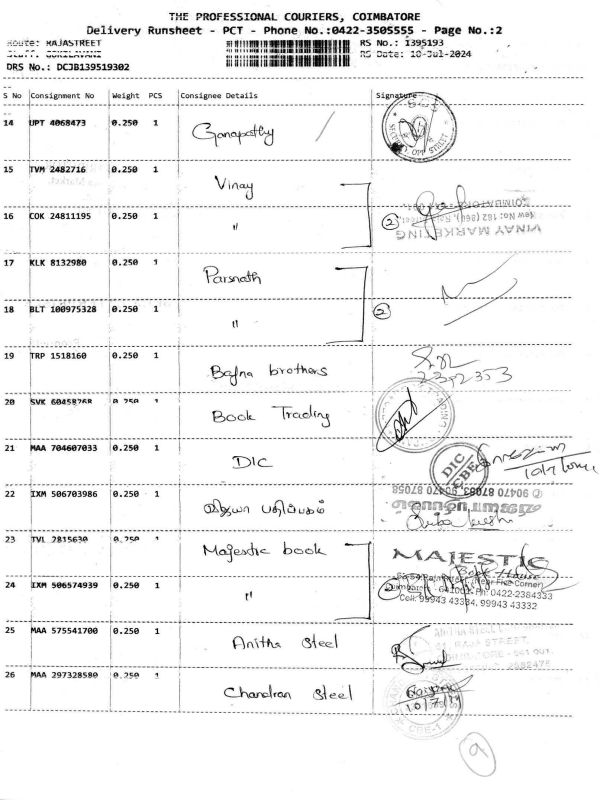 THE PROFESSIONAL COURIERS, COIMBATORE
Delivery Runsheet - PCT - Phone No.:0422-3505555 - Page No.:2
Route: RAJASTREET RS No.: 1395193
RS Date: 10-Jul-2024
DRS No.: DCJB139519302
S No Consignment No Weight PCS Consignee Details Signature
14 UPT 4068473 0.250 1 Ganapathy
15 TVM 2482716 0.250 1 Vinay
16 COK 24811195 0.250 1 " 2
VINAY MARKETING
17 KLK 8132980 0.250 1 Parsnath
18 BLT 100975328 0.250 1 " 2
19 TRP 1518160 0.250 1 Bafna brothers
20 SVK 60458768 0.250 1 Book Trading
21 MAA 704607033 0.250 1 DIC DIC CBE
22 IXM 506703986 0.250 1 விஜயா பதிப்பகம்
90470 87058
23 TVL 2815630 0.250 1 Majestic book MAJESTIC
Book House
24 IXM 506574939 0.250 1 " 2
Ph: 0422-2384333
Cell: 99943 43334, 99943 43332
25 MAA 575541700 0.250 1 Anitha Steel
26 MAA 297328580 0.250 1 Chandran Steel 10/7/24
9